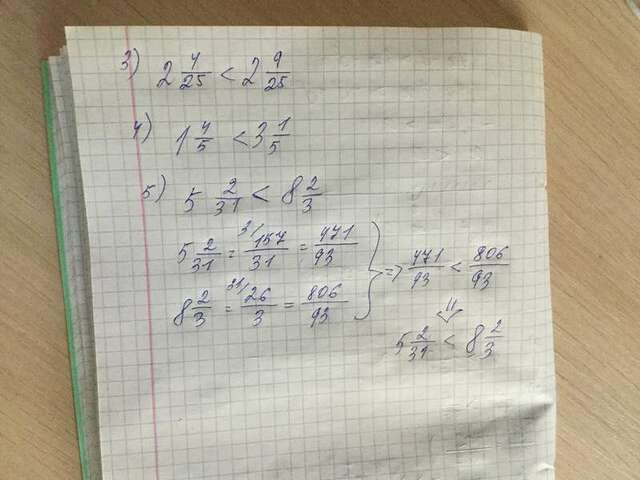 3) 2 4/25 < 2 9/25
4) 1 4/5 < 3 1/5
5) 5 2/31 < 8 2/3
5 2/31 = 3/ 157/31 = 471/93 } => 471/93 < 806/93
8 2/3 = 31/ 26/3 = 806/93
⇓
5 2/31 < 8 2/3